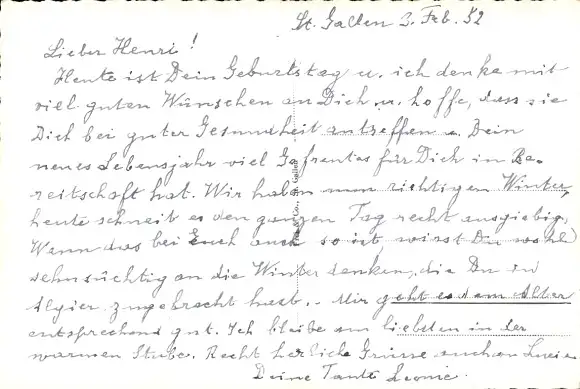 St. Gallen 3. Feb. 52
Lieber Henri!
Heute ist Dein Geburtstag u. ich denke mit
viel guten Wünschen an Dich u. hoffe, dass sie
Dich bei guter Gesundheit antreffen u. Dein
neues Lebensjahr viel Gefreutes für Dich in Be-
reitschaft hat. Wir haben nun richtigen Winter,
heute schneit es den ganzen Tag recht ausgiebig.
Wenn das bei Euch auch so ist, wirst Du wohl
sehnsüchtig an die Winter denken, die Du in
Algier zugebracht hast. Mir geht es dem Alter
entsprechend gut. Ich bleibe am liebsten in der
warmen Stube. Recht herzliche Grüsse euch
Deine Tante Leonie.
& Co., St. Gallen